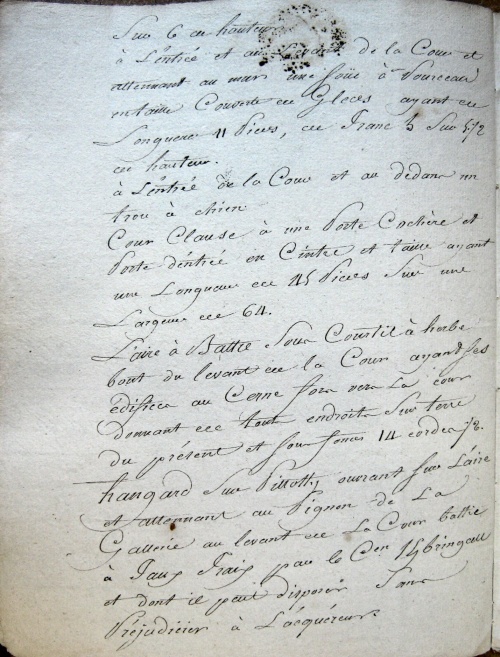 Sur 6 en hauteur
à L'entrée et au Levant de la Cour et
attennant au mur une soüe à Pourceau
en taille Couverte en Gleces ayant en
Longueur 11 Pieds, en Franc 5 Sur 5 1/2
en hauteur.
à L'entrée de la Cour et au dedans un
trou à chien
Cour Clause à une Porte Cochère et
Porte d'entrée en Cintre et taille ayant
une Longueur de 45 Pieds Sur une
Largeur de 64.
L'aire à Battre Sous Courtil à herbe
bout du levant de la Cour ayant ses
édifices au Cerne fors vers La cour
donnant de tout endroits Sur terre
du présent et sous fond 14 cordes 1/2
hangard Sur Pillotty ouvrant Sur L'aire
et attennant au Pignon de La
Gallerie au levant de La Cour battie
à Faux Frais par le Cen
et dont il peut disposer Sans
Préjudicier à L'acquéreur